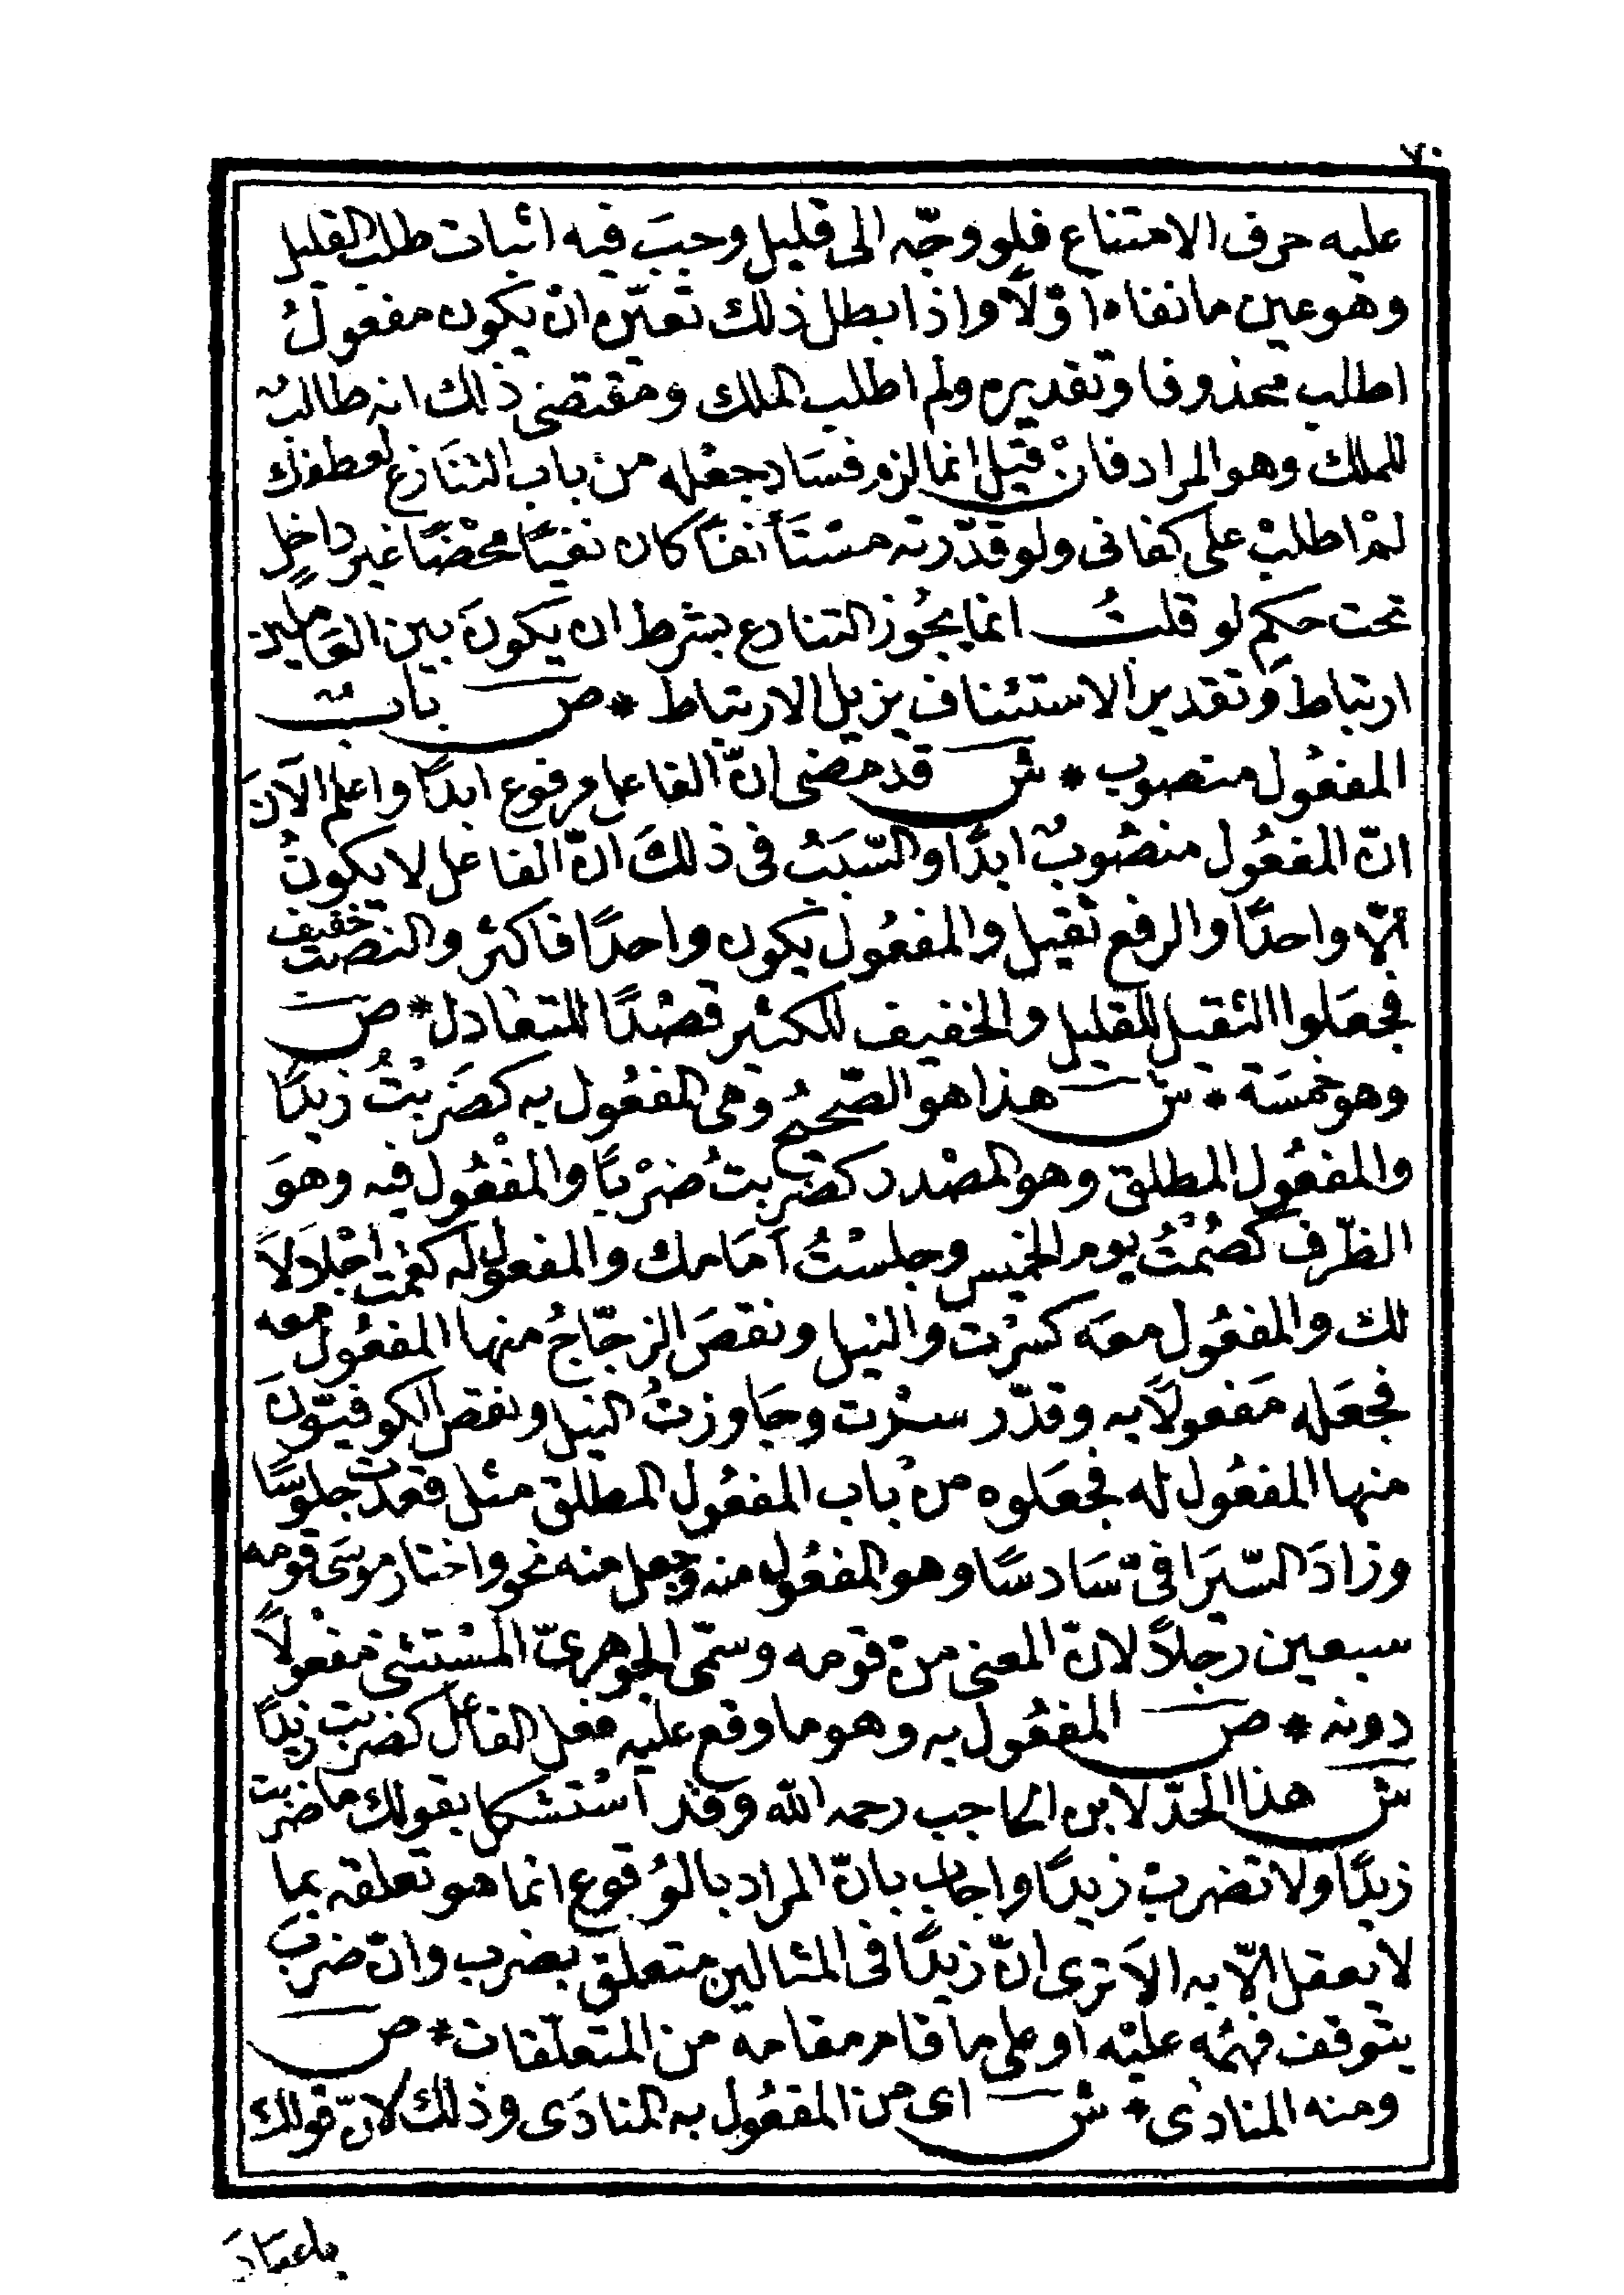 ٧٠
عليه حرف الامتناع فلو وجّه الى قليل وجبَ فيه اثبات طلب القليل
وهو عين ما نفاه اوّلًا واذا بطل ذلك تعيّن ان يكون مفعولُ
اطلب محذوفا وتقديره ولم اطلب الملك ومقتضى ذلك انه طالبٌ
للملك وهو المراد فانْ قيل انما لزم فسَاد جعْله من باب التنَازع لعطفك
لمْ اطلبْ على كفانى ولو قدّرته مسْتَأنفًا كان نفيًا محْضًا غير داخلٍ
تحت حكم لو قلتُ انما يجُوز التنازع بشرط ان يكونَ بين العَاملين
ارتباط وتقدير الاستئناف يزيل الارتباط * ص بابٌ
المفعُول منصوب * ش قد مضى انّ الفاعل مرفوع ابدًا واعلم الآنَ
انّ المفعُول منصُوبٌ ابدًا والسّبَبُ فى ذلكَ انّ الفاعل لا يكونُ
الّا واحدًا والرفع ثقيل والمفعُول يكون واحدًا فاكثر والنصبُ خفيف
فجعَلوا الثقيل للقليل والخفيف للكثير قصْدًا للتعَادل * ص
وهو خمسَة * ش هذا هو الصّحيحُ وهى المفعُول به كضَربْتُ زيدًا
والمفعُول المطلق وهو المصْدر كضربتُ ضرْبًا والمفعُول فيه وهوَ
الظّرف كصُمْتُ يوم الخميس وجلسْتُ اَمَامك والمفعول له كقمت اجْلَالًا
لك والمفعُول معَه كسرْت والنيل ونقصَ الزجّاجُ منها المفعُول معه
فجعَله مَفعولًا به وقدّر سرْت وجَاوزتُ النيل ونقص الكوفيّونَ
منها المفعُول له فجعَلوه منْ باب المفعُول المطلق مثل قعدت جلوسًا
وزادَ السّيَرافىّ سَادسًا وهو المفعُول منه وجعل منه نحو واختار موسَى قومه
سبعين رجلًا لانّ المعنى منْ قومه وسمّى الجوهرىّ المسْتثنى مفعولًا
دونه * ص المفعُول به وهو ما وقع عليه فعل الفاعل كضربت زيدًا
ش هذا الحدّ لابن الحاجب رحمه الله وقد استشكل بقولك ما ضربت
زيدًا ولا تضربْ زيدًا واجاب بانّ المراد بالوُقوع انما هو تعلقه بما
لا يعقل الّا به الَا ترى انّ زيدًا فى المثالين متعلق بضرب وانّ ضربَ
يتوقف فهْمُه عليْه او على ما قام مقامه من المتعلّقات * ص
ومنه المنادى * ش اى من المفعُول به المنادَى وذلك لانّ قولك
ياعبَادَ